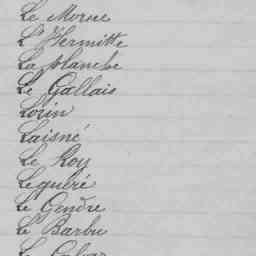 Le Morne
L'Hermitte
La planche
Le Gallais
Lorin
Laisné
Le Roy
Lequéré
Le Gendre
Le Barbu
Le